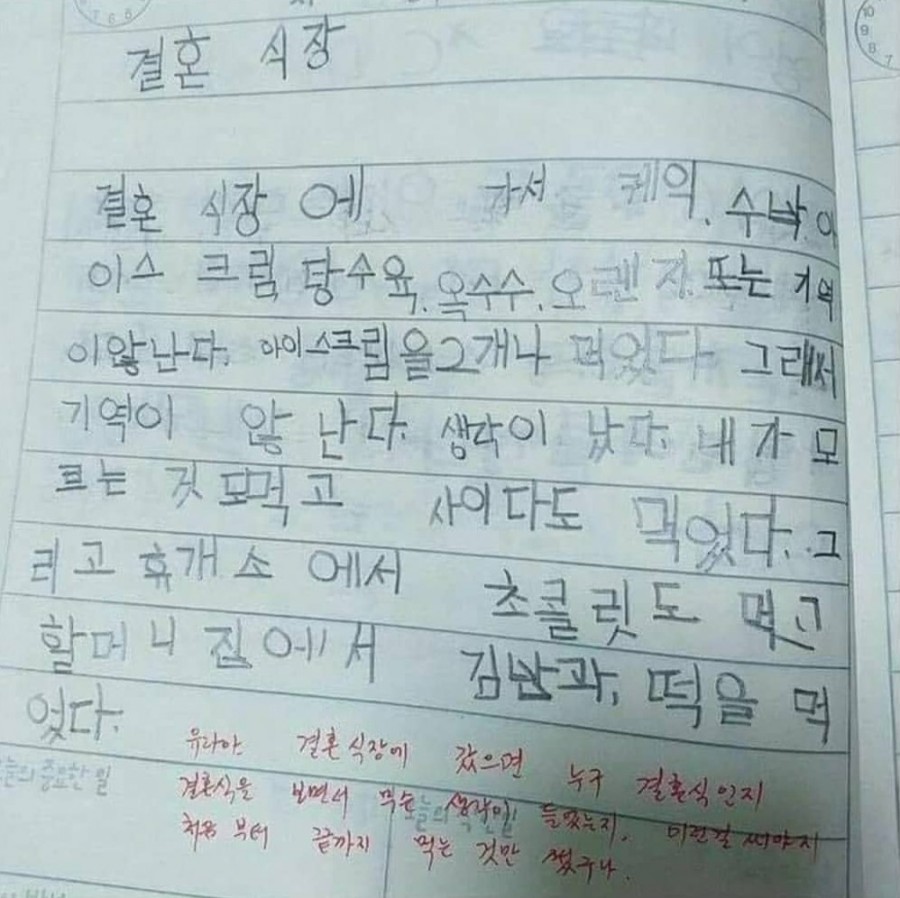 결혼 식장
결혼 식장 에 가서 케익, 수박, 아
이스 크림, 탕수육, 옥수수, 오렌지, 또는 기역
이않난다. 아이스크림을2개나 먹었다. 그래서
기역이 않 난다. 생각이 났다. 내가 모
르는 것 도먹고 사이다도 먹었다. 그
리고 휴개소 에서 초콜릿도 먹고
할머니 집에서 김밥과, 떡을 먹
었다.
유라야 결혼식장에 갔으면 누구 결혼식인지
결혼식을 보면서 무슨 생각이 들었는지, 이런걸 써야지
처음 부터 끝까지 먹는 것만 썼구나.